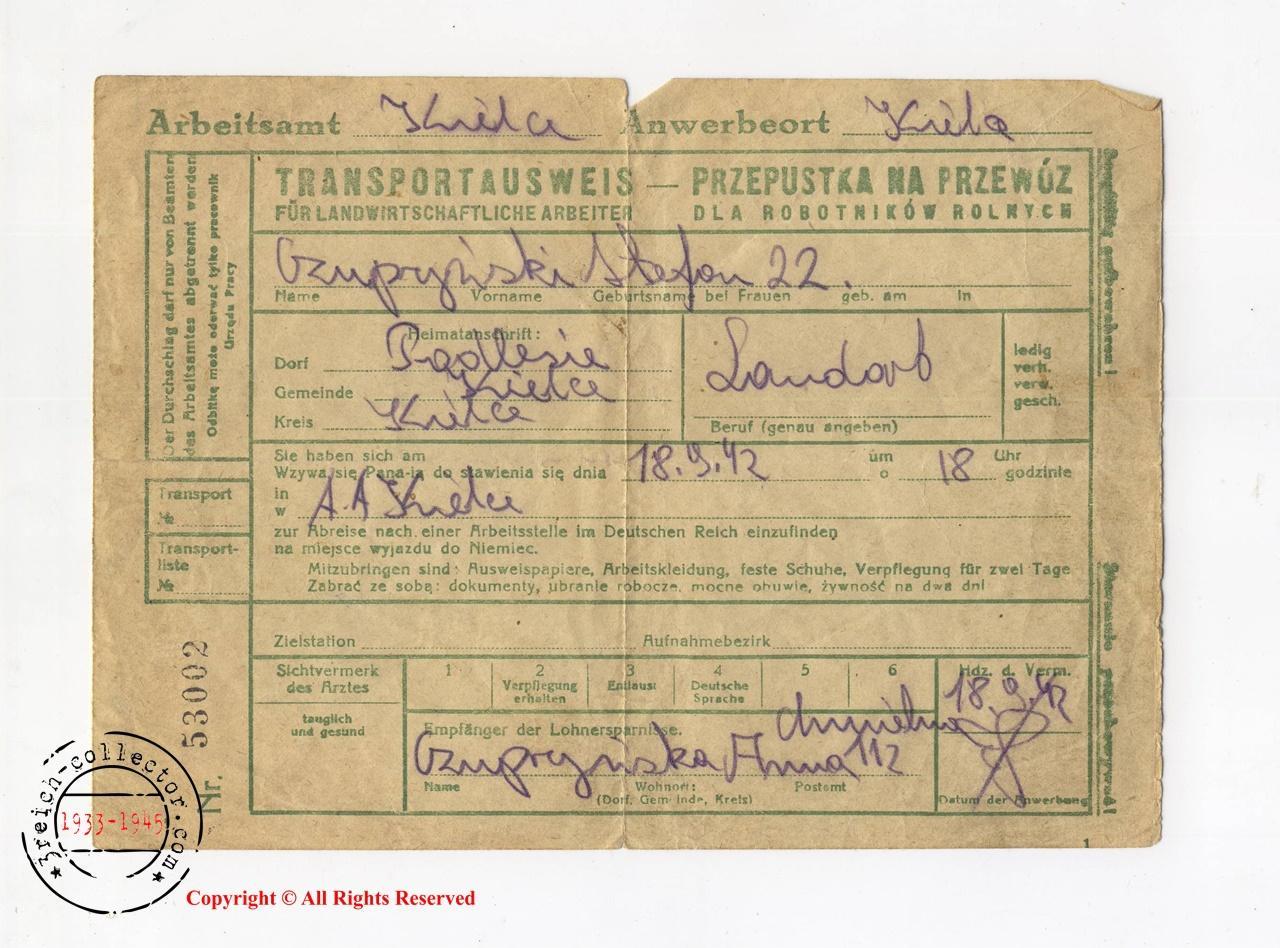 Arbeitsamt Kielce Anwerbeort Kielce
TRANSPORTAUSWEIS — PRZEPUSTKA NA PRZEWÓZ
FÜR LANDWIRTSCHAFTLICHE ARBEITER DLA ROBOTNIKÓW ROLNYCH
Der Durchschlag darf nur von Beamten
des Arbeitsamtes abgetrennt werden
Odbitkę może oderwać tylko pracownik
Urzędu Pracy
Czupryński Stefan 22.
Name Vorname Geburtsname bei Frauen geb. am in
Heimatanschrift:
Dorf Podlesie
Gemeinde Kielce
Kreis Kielce
Landarb
Beruf (genau angeben)
ledig
verh.
verw.
gesch.
Sie haben sich am um Uhr
Wzywa się Pana-ią do stawienia się dnia 18.9.42 o 18 godzinie
in
w A.A Kielce
zur Abreise nach einer Arbeitsstelle im Deutschen Reich einzufinden
na miejsce wyjazdu do Niemiec.
Mitzubringen sind: Ausweispapiere, Arbeitskleidung, feste Schuhe, Verpflegung für zwei Tage
Zabrać ze sobą: dokumenty, ubranie robocze, mocne obuwie, żywność na dwa dni
Transport
№
Transport-
liste
№
Zielstation Aufnahmebezirk
Sichtvermerk
des Arztes
tauglich
und gesund
1 2 3 4 5 6
Verpflegung
erhalten
Entlaust
Deutsche
Sprache
Hdz. d. Verm.
18.9.42
Empfänger der Lohnersparnisse.
Czupryńska Anna 112
Name Wohnort: Postamt
(Dorf, Gemeinde, Kreis)
Datum der Anwerbung
Nr. 53002
Sorgfältig aufbewahren!
Starannie przechowywać!
1
3reich-collector.com
1933-1945
Copyright © All Rights Reserved